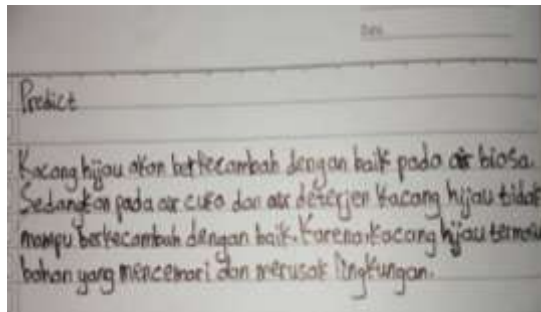 Predict
Kacang hijau akan berkecambah dengan baik pada air biasa.
Sedangkan pada air cuka dan air deterjen kacang hijau tidak
mampu berkecambah dengan baik. Karena kacang hijau
bahan yang mencemari dan merusak lingkungan.